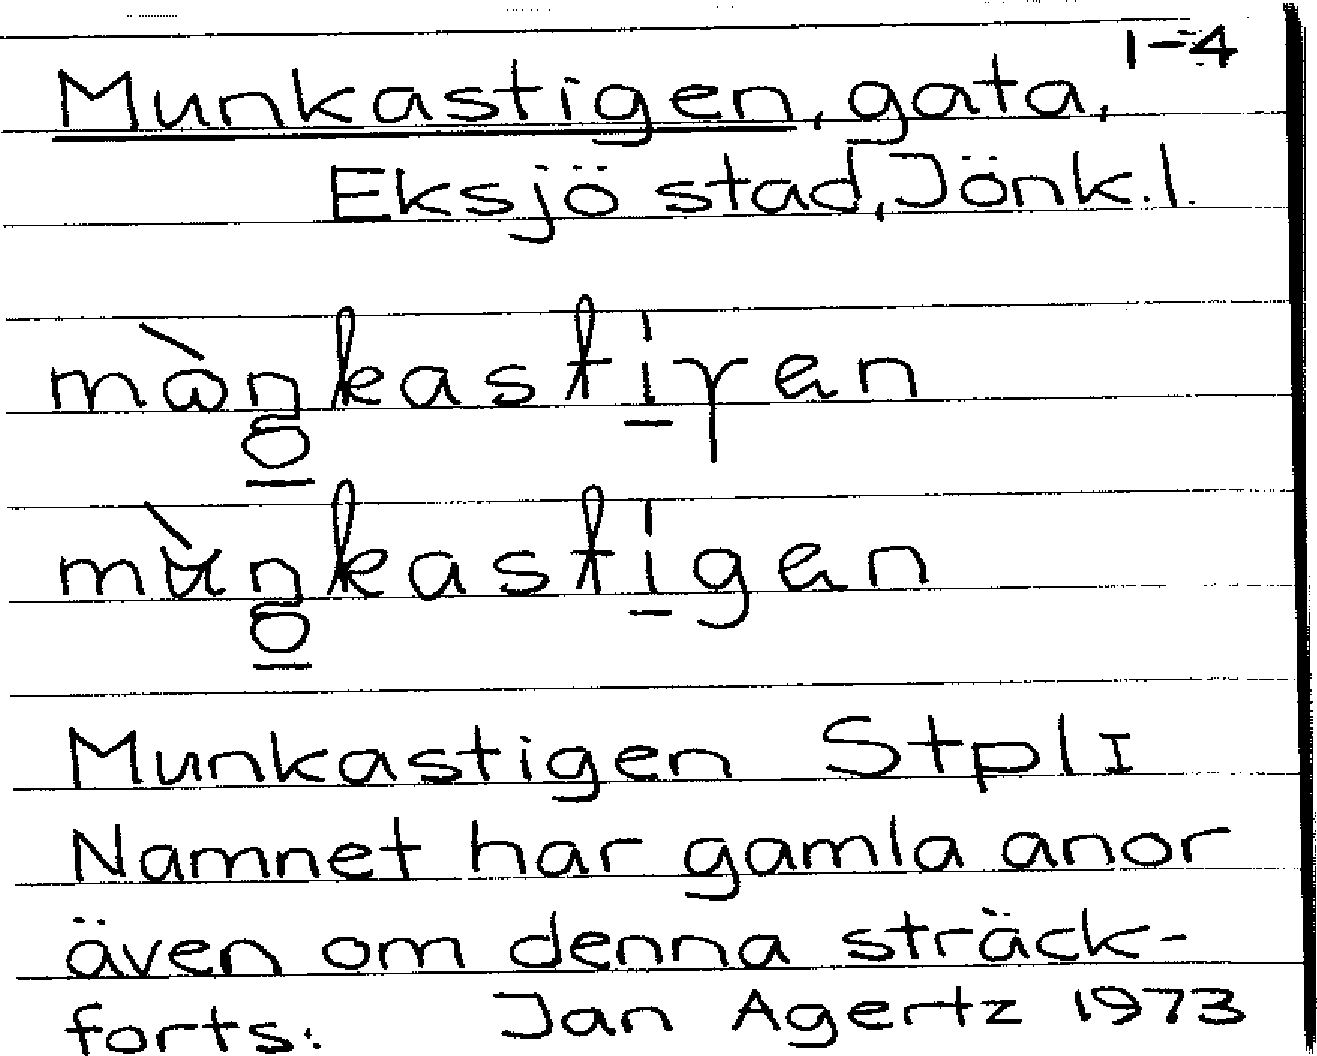 1-4
Munkastigen, gata,
Eksjö stad, Jönk.l.
mo̊̀ŋkastiγen
mùŋkastigen
Munkastigen StplI
Namnet har gamla anor
även om denna sträck-
forts: Jan Agertz 1973